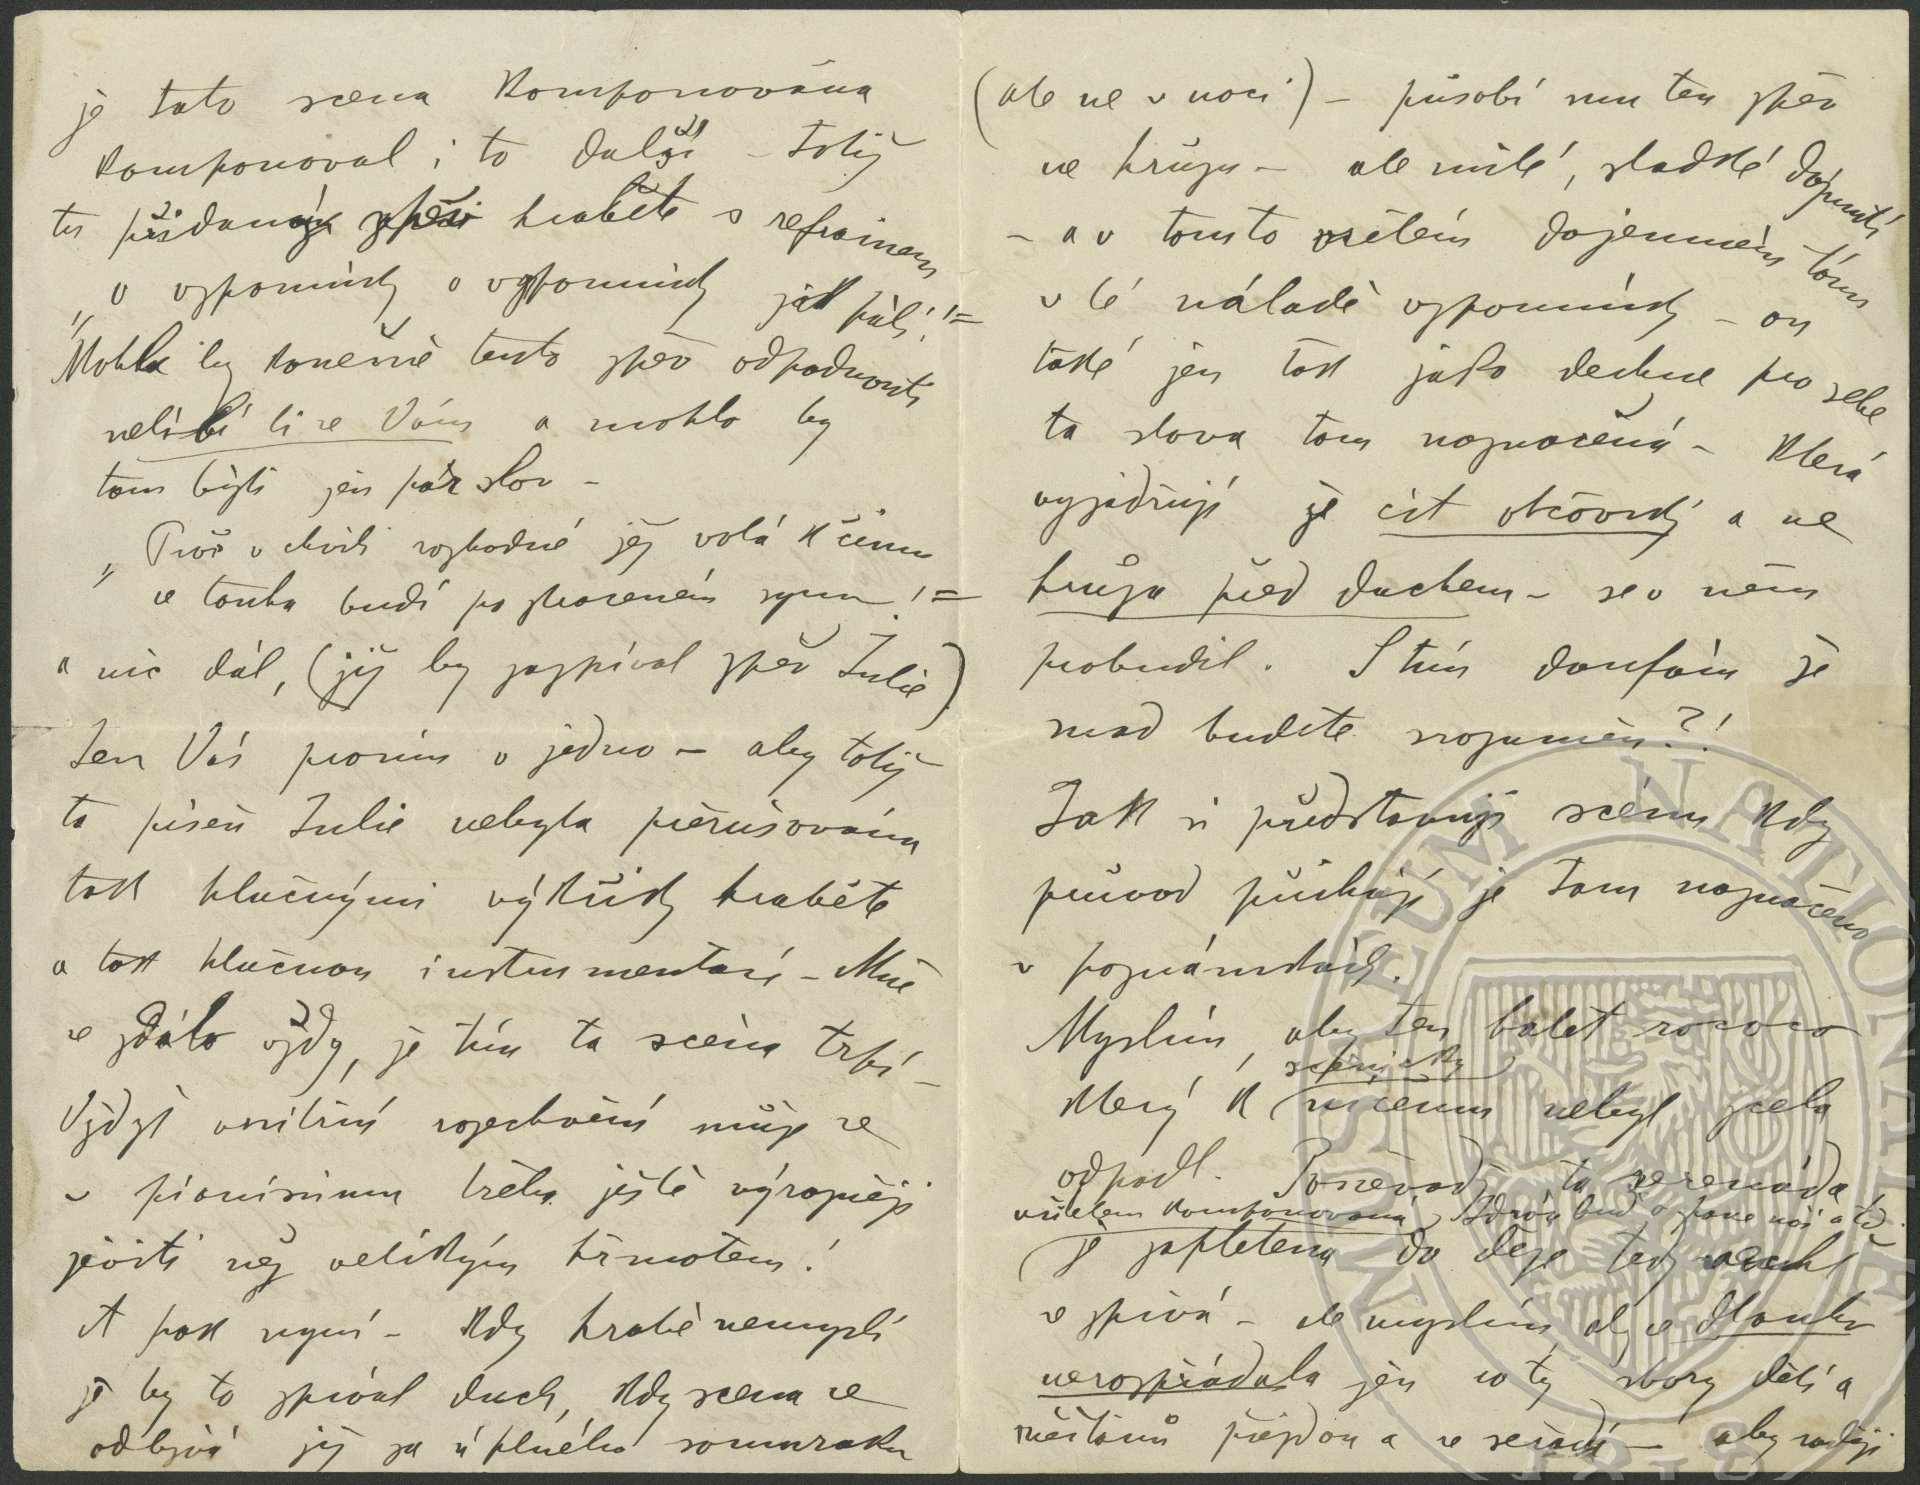 je tato scena komponována
komponoval i to další – totiž
tu přidanou hraběte s refrainem
„O vzpomínky o vzpomínky jak pálí!“ =
Mohla by konečně tento zpěv odpadnouti
nelíbí li se Vám a mohlo by
tam býti jen pár slov –
„Proč v chvíli rozhodné jej volá k činu
se touha budí po ztraceném synu!“ =
a nic dál, (již by zazpíval zpěv Julie)
Jen Vás prosím o jedno – aby totiž
ta píseň Julie nebyla přerušována
tak hlučnými výkřiky hraběte
a tak hlučnou instrumentací – Mně
se zdálo vždy, že tím ta scéna trpí –
Vždyť vnitřní rozechvění může se
v pianissimu třeba ještě výrazněji
jeviti než velikým hřmotem!
A pak nyní – kdy hrabě nemyslí
že by to zpíval duch, kdy scena se
odbývá již za úplného soumraku
(ale ne v noci) – působí mu ten zpěv
ne hrůzu – ale milé, sladké dojmutí
– a v tomto vřelém dojemném tónu
v té náladě vzpomínky – on
také jen tak jako dechne pro sebe
ta slova tam naznačená – která
vyjadřují že cit otcovský a ne
hrůza před duchem – se v něm
probudil. S tím doufám že
snad budete srozuměn?!
Jak si představuji scénu kdy
průvod přichází je tam naznačeno
v poznámkách.
Myslím, aby ten balet rococo
scénicky
který k ničemu nebyl zcela
odpadl. Poněvadž ta serenáda
komponovaná
je zapletena do děje tedy
se zpívá – ale myslím, aby se dlouho
nerozpřádala jen co ty sbory dětí a
měšťanů přejdou a se seřadí – aby raději